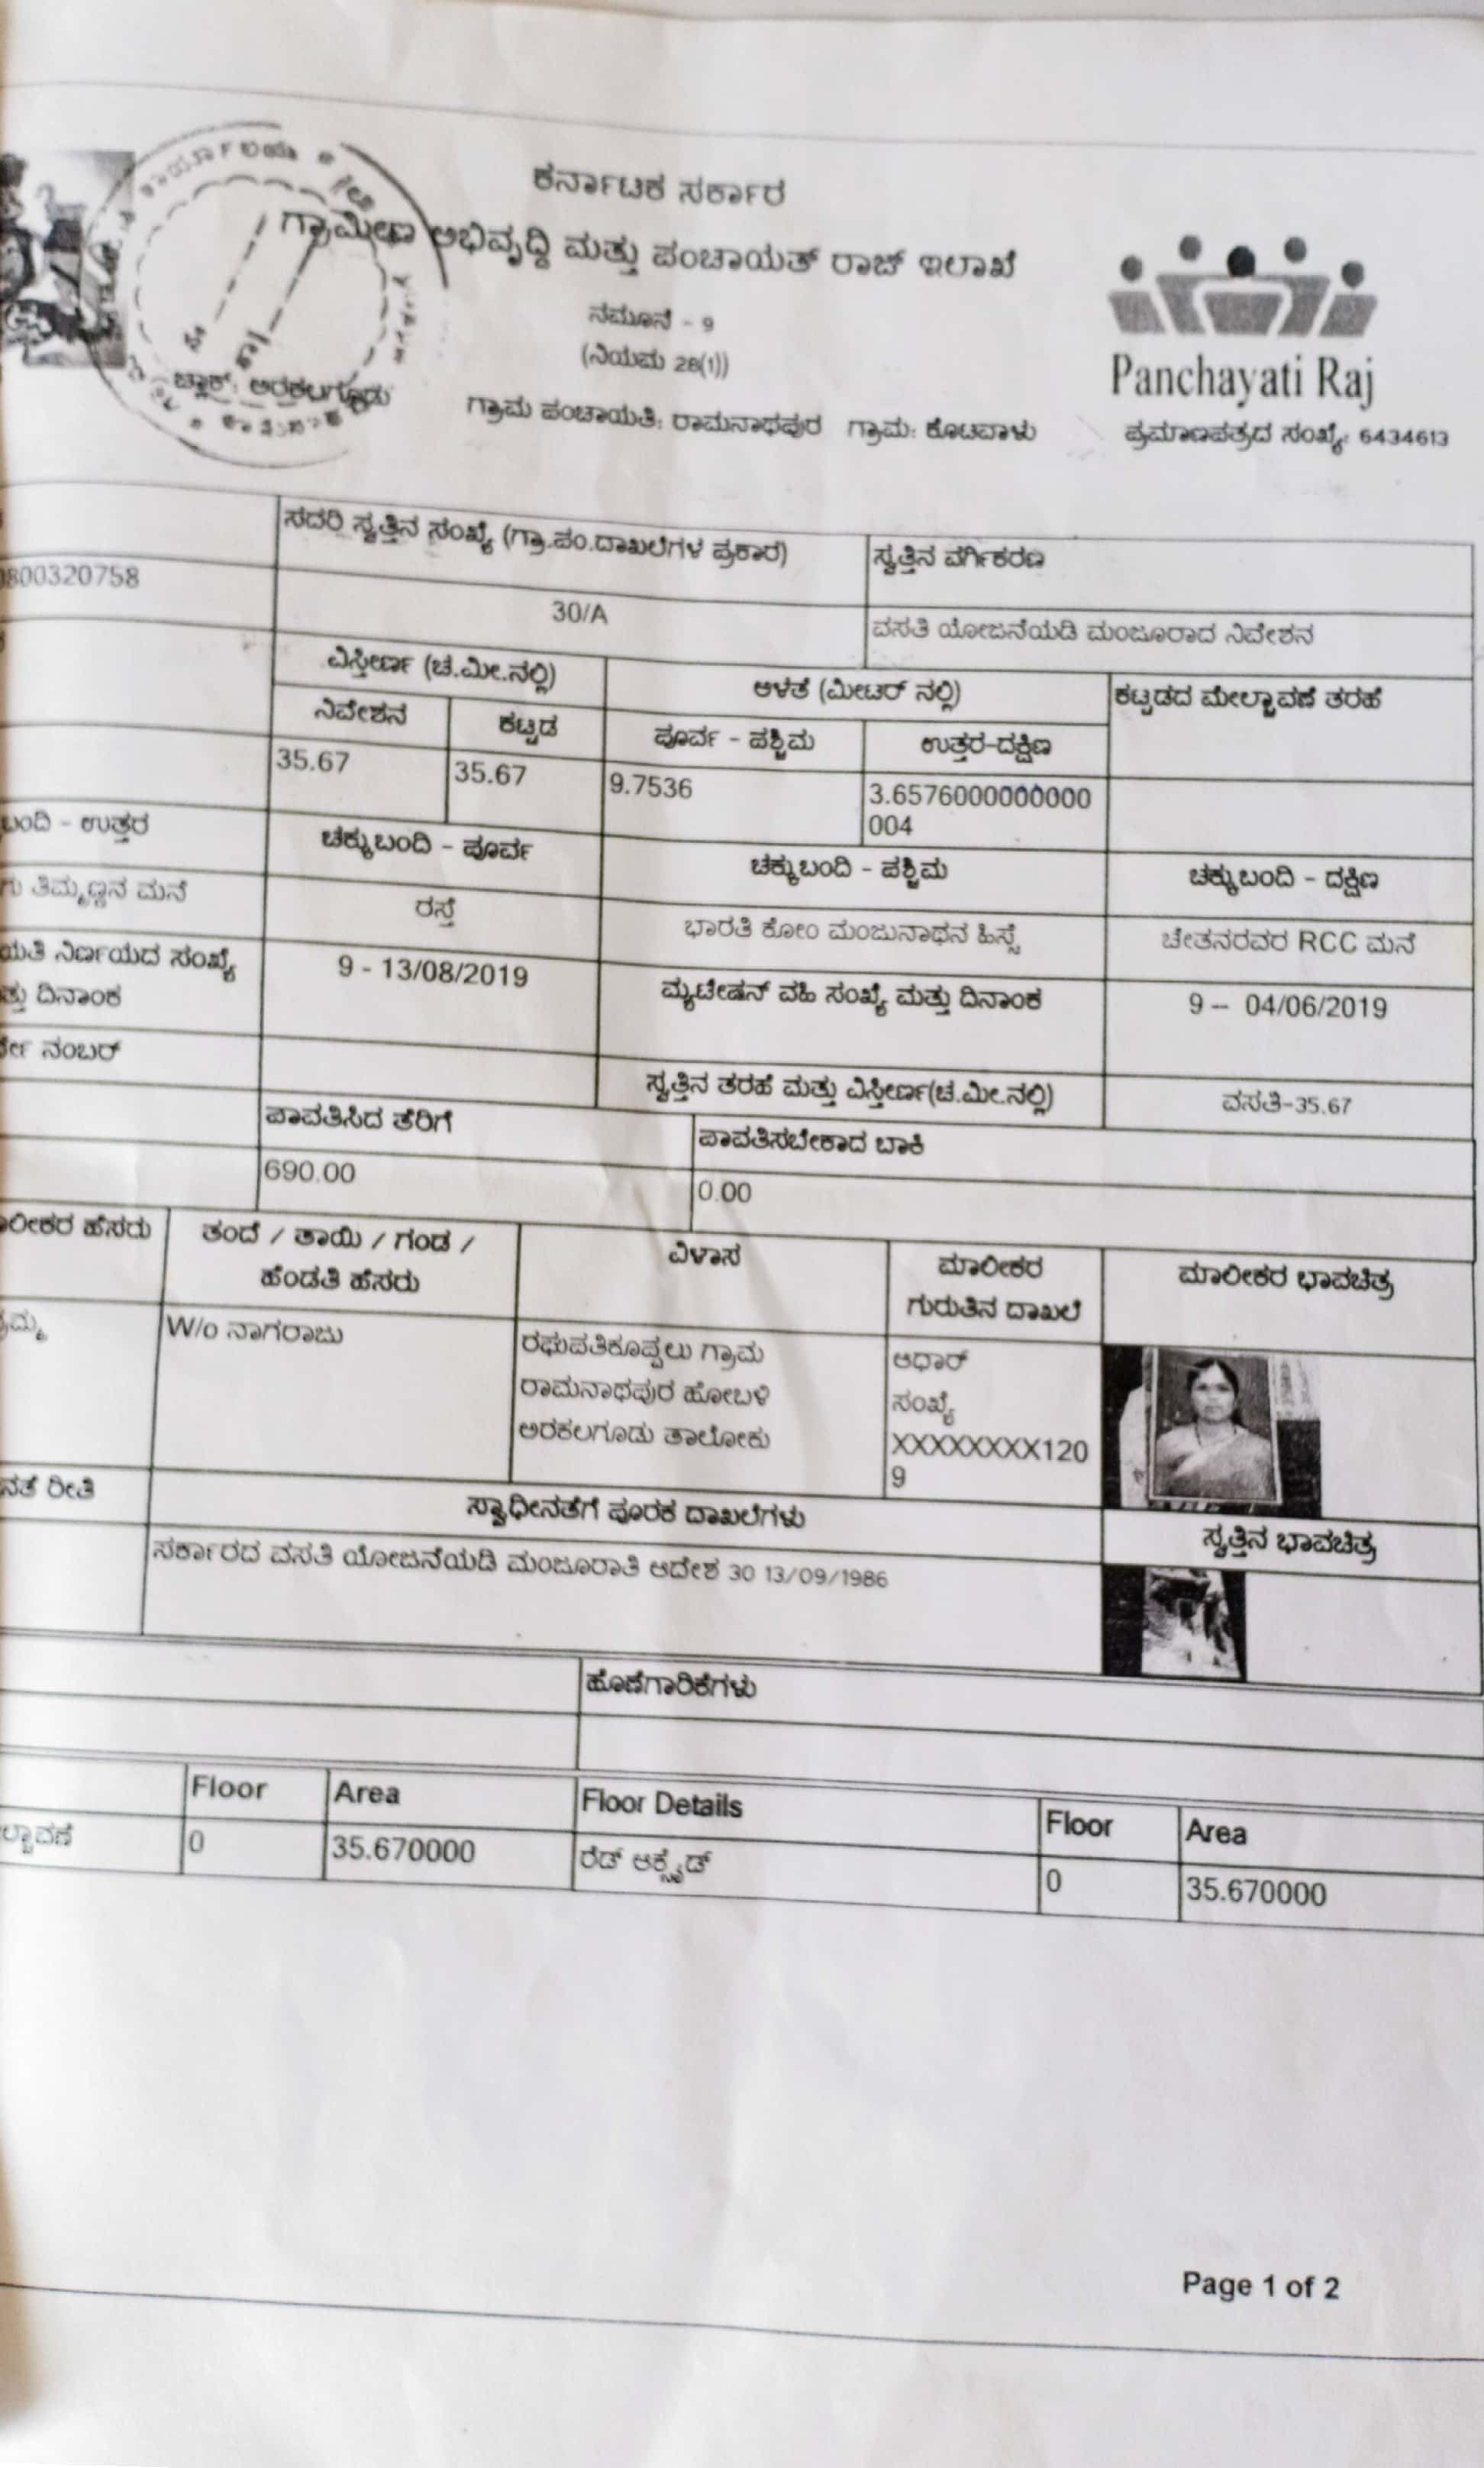 ಕರ್ನಾಟಕ ಸರ್ಕಾರ
ಗ್ರಾಮೀಣ ಅಭಿವೃದ್ಧಿ ಮತ್ತು ಪಂಚಾಯತ್ ರಾಜ್ ಇಲಾಖೆ
ನಮೂನೆ - 9
(ನಿಯಮ 28(1))
Panchayati Raj
ಬ್ಲಾಕ್: ಅರಕಲಗೂಡು ಗ್ರಾಮ ಪಂಚಾಯತಿ: ರಾಮನಾಥಪುರ ಗ್ರಾಮ: ಕೊಟವಾಳು ಪ್ರಮಾಣಪತ್ರದ ಸಂಖ್ಯೆ: 6434613
ಸದರಿ ಸ್ವತ್ತಿನ ಸಂಖ್ಯೆ (ಗ್ರಾ.ಪಂ.ದಾಖಲೆಗಳ ಪ್ರಕಾರ) ಸ್ವತ್ತಿನ ವರ್ಗೀಕರಣ
800320758 30/A ವಸತಿ ಯೋಜನೆಯಡಿ ಮಂಜೂರಾದ ನಿವೇಶನ
ವಿಸ್ತೀರ್ಣ (ಚ.ಮೀ.ನಲ್ಲಿ) ಅಳತೆ (ಮೀಟರ್ ನಲ್ಲಿ) ಕಟ್ಟಡದ ಮೇಲ್ಚಾವಣಿ ತರಹೆ
ನಿವೇಶನ ಕಟ್ಟಡ ಪೂರ್ವ - ಪಶ್ಚಿಮ ಉತ್ತರ-ದಕ್ಷಿಣ
35.67 35.67 9.7536 3.6576000000000
004
ಬಂದಿ - ಉತ್ತರ ಚಕ್ಕುಬಂದಿ - ಪೂರ್ವ ಚಕ್ಕುಬಂದಿ - ಪಶ್ಚಿಮ ಚಕ್ಕುಬಂದಿ - ದಕ್ಷಿಣ
ತಿಮ್ಮಣ್ಣನ ಮನೆ ರಸ್ತೆ ಭಾರತಿ ಕೋಂ ಮಂಜುನಾಥನ ಹಿಸ್ಸೆ ಚೇತನರವರ RCC ಮನೆ
ಯತಿ ನಿರ್ಣಯದ ಸಂಖ್ಯೆ 9 - 13/08/2019 ಮ್ಯುಟೇಷನ್ ವಹಿ ಸಂಖ್ಯೆ ಮತ್ತು ದಿನಾಂಕ 9 -- 04/06/2019
ತ್ತು ದಿನಾಂಕ
ರ್ವೇ ನಂಬರ್ ಸ್ವತ್ತಿನ ತರಹೆ ಮತ್ತು ವಿಸ್ತೀರ್ಣ(ಚ.ಮೀ.ನಲ್ಲಿ) ವಸತಿ-35.67
ಪಾವತಿಸಿದ ತೆರಿಗೆ ಪಾವತಿಸಬೇಕಾದ ಬಾಕಿ
690.00 0.00
ಲೀಕರ ಹೆಸರು ತಂದೆ / ತಾಯಿ / ಗಂಡ / ವಿಳಾಸ ಮಾಲೀಕರ ಮಾಲೀಕರ ಭಾವಚಿತ್ರ
ಹೆಂಡತಿ ಹೆಸರು ಗುರುತಿನ ದಾಖಲೆ
ಮ್ಮ W/o ನಾಗರಾಜು ರಘುಪತಿಕೊಪ್ಪಲು ಗ್ರಾಮ ಆಧಾರ್
ರಾಮನಾಥಪುರ ಹೋಬಳಿ ಸಂಖ್ಯೆ
ಅರಕಲಗೂಡು ತಾಲೋಕು XXXXXXXX120
9
ನತೆ ರೀತಿ ಸ್ವಾಧೀನತೆಗೆ ಪೂರಕ ದಾಖಲೆಗಳು ಸ್ವತ್ತಿನ ಭಾವಚಿತ್ರ
ಸರ್ಕಾರದ ವಸತಿ ಯೋಜನೆಯಡಿ ಮಂಜೂರಾತಿ ಆದೇಶ 30 13/09/1986
ಹೊಣೆಗಾರಿಕೆಗಳು
Floor Area Floor Details Floor Area
ಲ್ಚಾವಣಿ 0 35.670000 ರೆಡ್ ಆಕ್ಸೈಡ್ 0 35.670000
Page 1 of 2